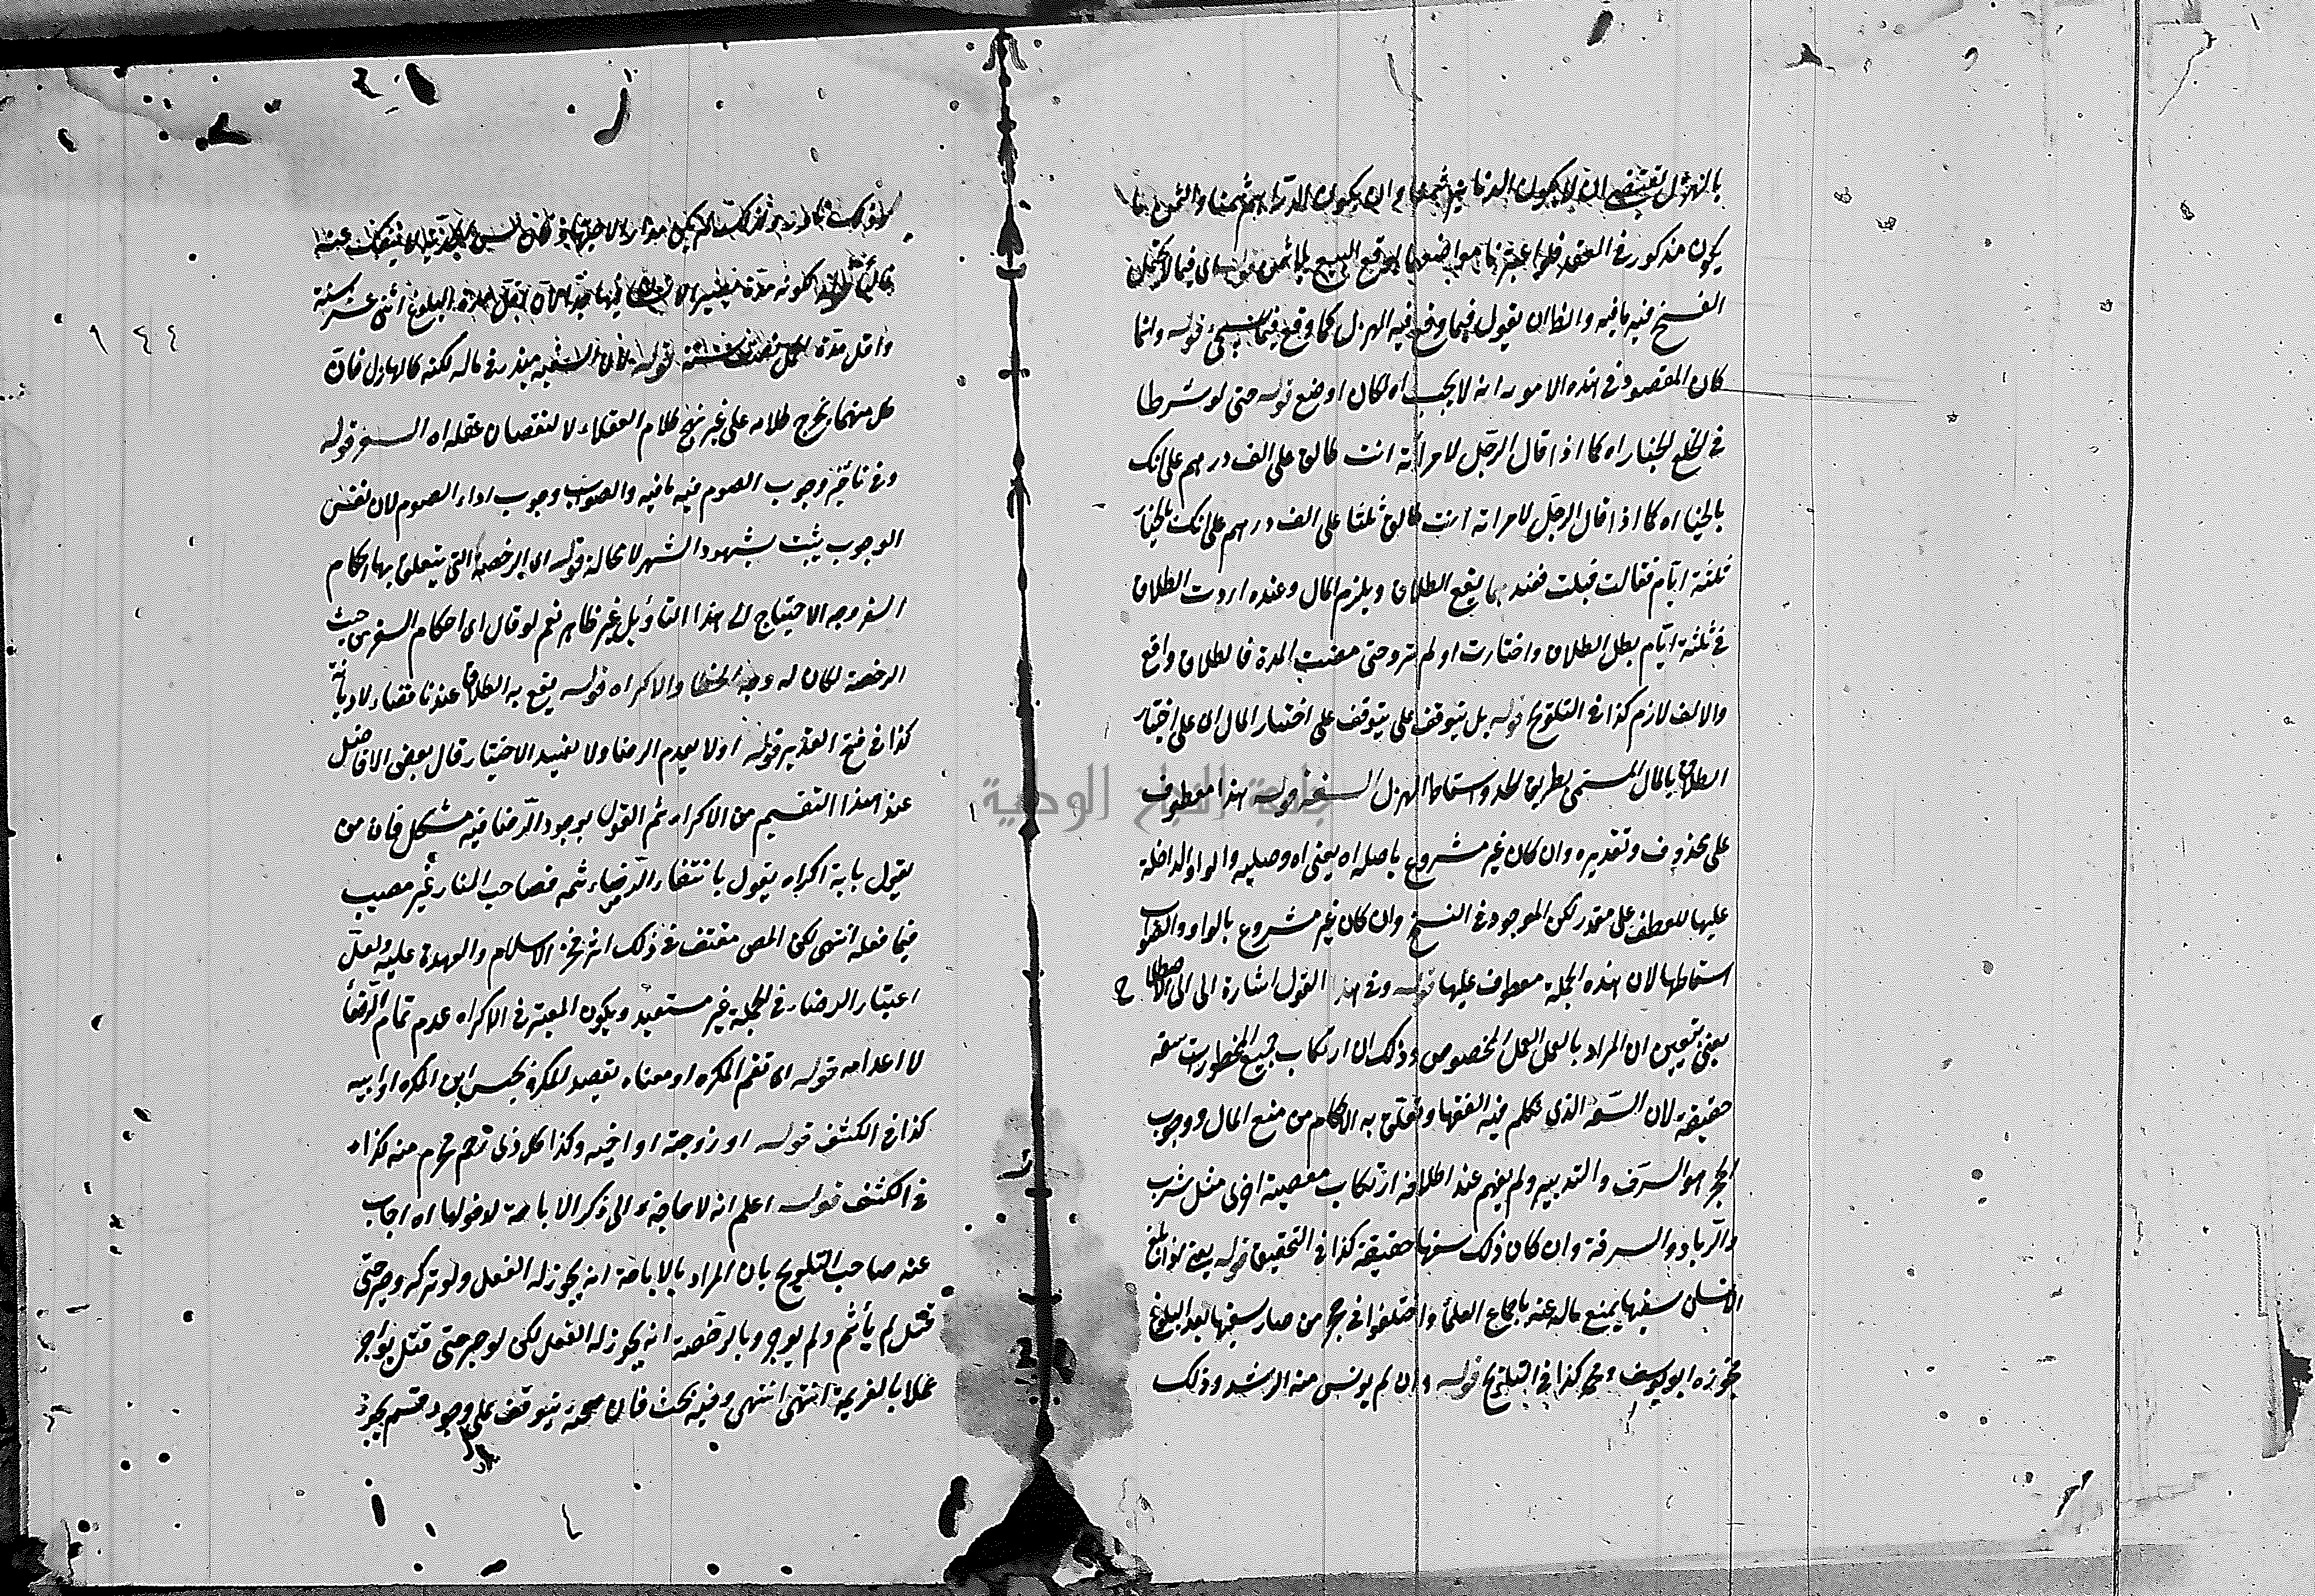 بالهزل يقتضى ان لا يكون الدنانير ثمنا وان يكون الدراهم ثمنا والثمن ما
يكون مذكور فى العقد فلو اعتبرنا مواضعهما لوقع البيع بلا ثمن قوله اى فيما لا يحتمل
الفسخ فيه ما فيه والظ ان يقول فيما وقع فيه الهزل كما وقع فيما سيجئ قوله وانما
كان المقصود فى هذه الامور انه لا يجب اه لكان اوضع قوله حتى لو شرطا
فى الخلع الخيار اه كما اذا قال الرجل لامراته انت طالق على الف درهم على انك
بالخيار اه كما اذا قال الرجل لامراته انت طالق ثلثا على الف درهم على انك بالخيار
ثلثة ايام فقالت قبلت فعندهما يقع الطلاق ويلزم المال وعنده اردت الطلاق
فى ثلثة ايام بطل الطلاق واختارت او لم ترد حتى مضت المدة فالطلاق واقع
والالف لازم كذا فى التلويح قوله بل يتوقف على يتوقف على اختيار المال اى على اختيار
الطلاق بالمال المسمى بطريق الجد واسقاط الهزل السفه قوله هذا معطوف
على محذوف وتقديره وان كان غير مشروع باصله اه يعنى اه وصليه والواو الداخلة
عليها للعطف على مقدر لكن الموجود فى النسخ وان كان غير مشروع بالواو والصواب
اسقاطها لان هذه الجملة معطوف عليها قوله وفى هذا القول اشارة الى الاصطلاح
يعنى يتعين ان المراد بالعمل العمل المخصوص وذلك ان ارتكاب جميع المحظورات سفه
حقيقة لان السفه الذى تكلم فيه الفقها وتعلق به الاحكام من منع المال ووجوب
الحجر هو السرف والتدبير ولم يفهم عند اطلاقه ارتكاب معصية اخرى مثل شرب
والربا والسرقة وان كان ذلك سفها حقيقة كذا فى التحقيق قوله يعنى لو ان بلغ
الانسان سفيها يمنع ماله عنه باجماع العلماء واختلفوا فى حجر من صار سفيها بعد البلوغ
فجوزه ابو يوسف ومحمد كذا فى التلويح قوله وان لم يونس منه الرشد وذلك
١٤٤
فانئذ لكونه مدة يصير الانسان فيها جدا لان اقل مدة البلوغ اثنى عشر سنة
واقل مدة الحمل نصف سنة قوله لان السفيه يبذر فى ماله لكنه كالهازل فان
كل منهما يخرج كلامه على غير نهج كلام العقلاء لا لنقصان عقله اه السفر قوله
وفى تأخير وجوب الصوم فيه ما فيه والصواب وجوب اداء الصوم لان نفس
الوجوب يثبت بشهود الشهر لا محالة قوله اى الرخصة التى يتعلق بها احكام
السفر وجه الاحتياج الى هذا التأويل غير ظاهر نعم لو قال اى احكام السفر من حيث
الرخصة لكان له وجه الخطا والاكراه قوله يقع به الطلاق عندنا قضاء لا ديانة
كذا فى فتح القدير قوله اولا يعدم الرضا ولا يفسد الاختيار قال بعض الافاضل
عند هذا التقسيم من الاكراه ثم القول بوجود الرضا فيه مشكل فان من
يقول بانه اكراه يقول بانتفاء الرضاء ثمه فصاحب المنار غير مصيب
فيما فعله انتهى لكن المص مقتف فى ذلك اثر فخر الاسلام والعهدة عليه ولعل
اعتبار الرضاء فى الجملة غير مستبعد ويكون المعتبر فى الاكراه عدم تمام الرضا
لا اعدامه قوله اى تفهم المكره او معناه بقصد المكره بحبس ابن المكره او ابيه
كذا فى الكشف قوله او زوجته او اخيه وكذا كل ذى رحم محرم منه كذا
فى الكشف قوله اعلم انه لا حاجة الى ذكر الاباحة لدخولها اه اجاب
عنه صاحب التلويح بان المراد بالاباحة انه يجوز له الفعل ولو تركه وصبر حتى
قتل لم يأثم ولم يوجر وبالرخصة انه يجوز له الفعل لكن لو صبر حتى قتل يواجر
عملا بالعزيمة انتهى انتهى وفيه بحث فان صحته يتوقف على وجود قسم يجوز